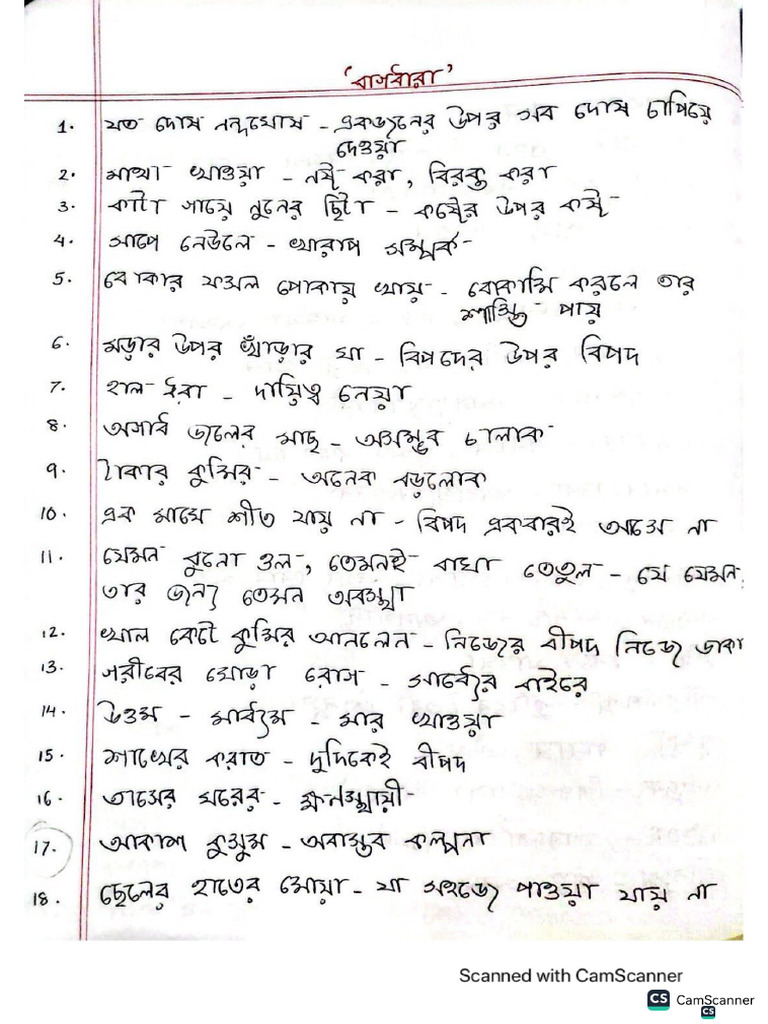 ‘বাগধারা’
1. যত দোষ নন্দঘোষ - একজনের উপর সব দোষ চাপিয়ে
দেওয়া
2. মাথা খাওয়া - নষ্ট করা, বিরক্ত করা
3. কাটা গায়ে নুনের ছিটা - কষ্টের উপর কষ্ট
4. সাপে নেউলে - খারাপ সম্পর্ক
5. বোকার ফসল পোকায় খায় - বোকামি করলে তার
শাস্তি পায়
6. মড়ার উপর খাঁড়ার ঘা - বিপদের উপর বিপদ
7. হাল ধরা - দায়িত্ব নেয়া
8. অগাধ জলের মাছ - অসম্ভব চালাক
9. টাকার কুমির - অনেক বড়লোক
10. এক মাঘে শীত যায় না - বিপদ একবারই আসে না
11. যেমন বুনো ওল, তেমনই বাঘা তেতুল - যে যেমন
তার জন্য তেমন অবস্থা
12. খাল কেটে কুমির আনলেন - নিজের বীপদ নিজে ডাকা
13. গরীবের ঘোড়া রোগ - সাধ্যের বাইরে
14. উওম - মাধ্যম - মার খাওয়া
15. শাখের করাত - দুদিকেই বীপদ
16. তাসের ঘরের - ক্ষনস্থায়ী
17. আকাশ কুসুম - অবাস্তব কল্পনা
18. ছেলের হাতের মোয়া - যা সহজে পাওয়া যায় না
Scanned with CamScanner
CS CamScanner
CS